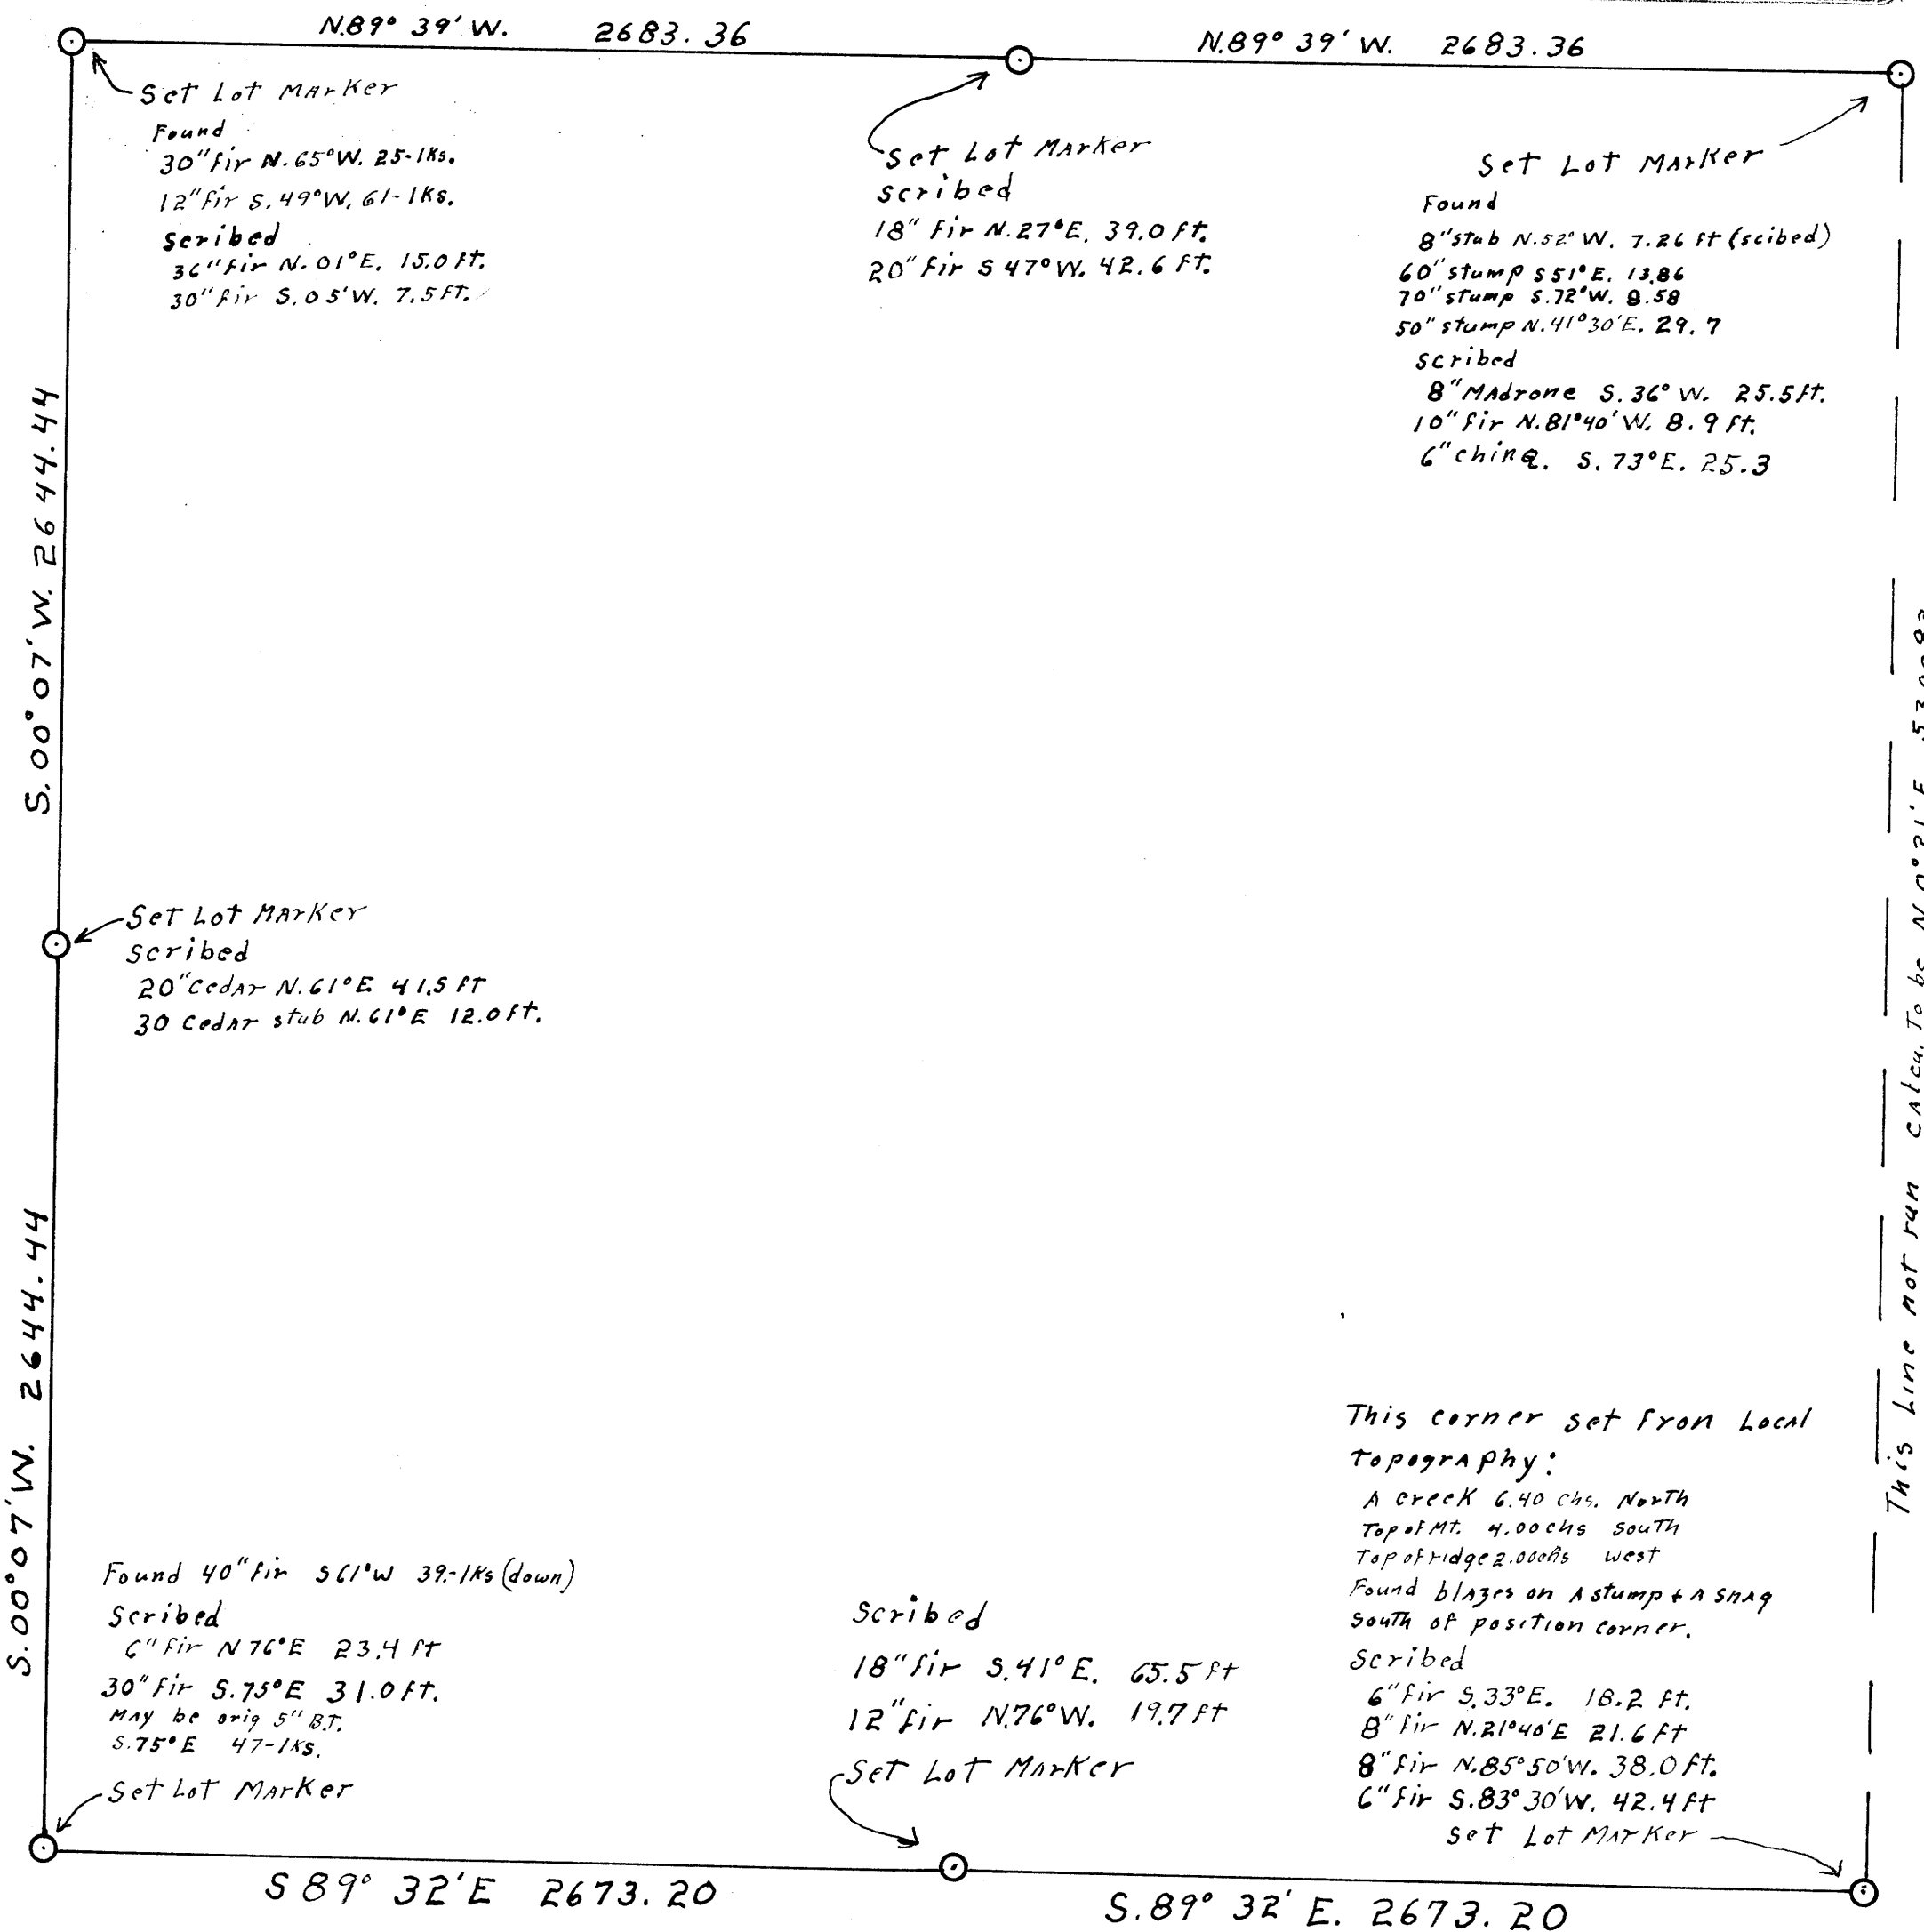 N.89° 39' W. 2683.36
N.89° 39' W. 2683.36
Set Lot Marker
Found
30" fir N.65°W. 25-lks.
12" fir S.49°W. 61-lks.
scribed
36" fir N.01°E. 15.0 ft.
30" fir S.05'W. 7.5 ft.
Set Lot Marker
scribed
18" fir N.27°E. 39.0 ft.
20" fir S 47°W. 42.6 ft.
Set Lot Marker
Found
8" stub N.52° W. 7.26 ft (scibed)
60" stump S 51°E. 13.86
70" stump S.72°W. 8.58
50" stump N.41°30'E. 29.7
scribed
8" Madrone S.36° W. 25.5 ft.
10" fir N.81°40' W. 8.9 ft.
6" chinq. S.73°E. 25.3
S.00°07'W. 2644.44
Set Lot Marker
scribed
20" Cedar N.61°E 41.5 ft
30 Cedar stub N.61°E 12.0 ft.
S.00°07'W. 2644.44
This Line not run Calcu. To be N.0°21'E
Found 40" fir S61°W 39-lks (down)
Scribed
6" fir N76°E 23.4 ft
30" fir S.75°E 31.0 ft.
May be orig 5" B.T.
S.75°E 47-lks.
Set Lot Marker
Scribed
18" fir S.41°E. 65.5 ft
12" fir N.76°W. 19.7 ft
Set Lot Marker
This corner set fron Local
Topography:
A creek 6.40 chs. North
Top of Mt. 4.00 chs South
Top of ridge 2.00 chs West
Found blazes on A stump + A snag
South of position corner.
Scribed
6" fir S.33°E. 18.2 ft.
8" fir N.21°40'E 21.6 ft
8" fir N.85°50'W. 38.0 ft.
6" fir S.83°30'W. 42.4 ft
Set Lot Marker
S 89° 32' E 2673.20
S.89° 32' E. 2673.20